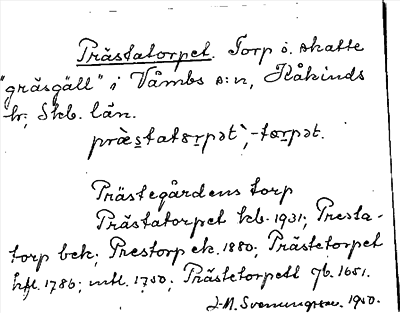 Prästatorpet. Torp o. skatte
"gräsgäll" i Våmbs s:n, Kåkinds
hr, Skb. län.
præ̀statɷrpət`, -tɷrpət.
Prästegårdens torp
Prästatorpet kb. 1931; Presta-
torp bek; Prestorp ek. 1880; Prästetorpet
hfl. 1786; mtl. 1750; Prästetorpett jb. 1651.
J-M. Svenungsson. 1950.